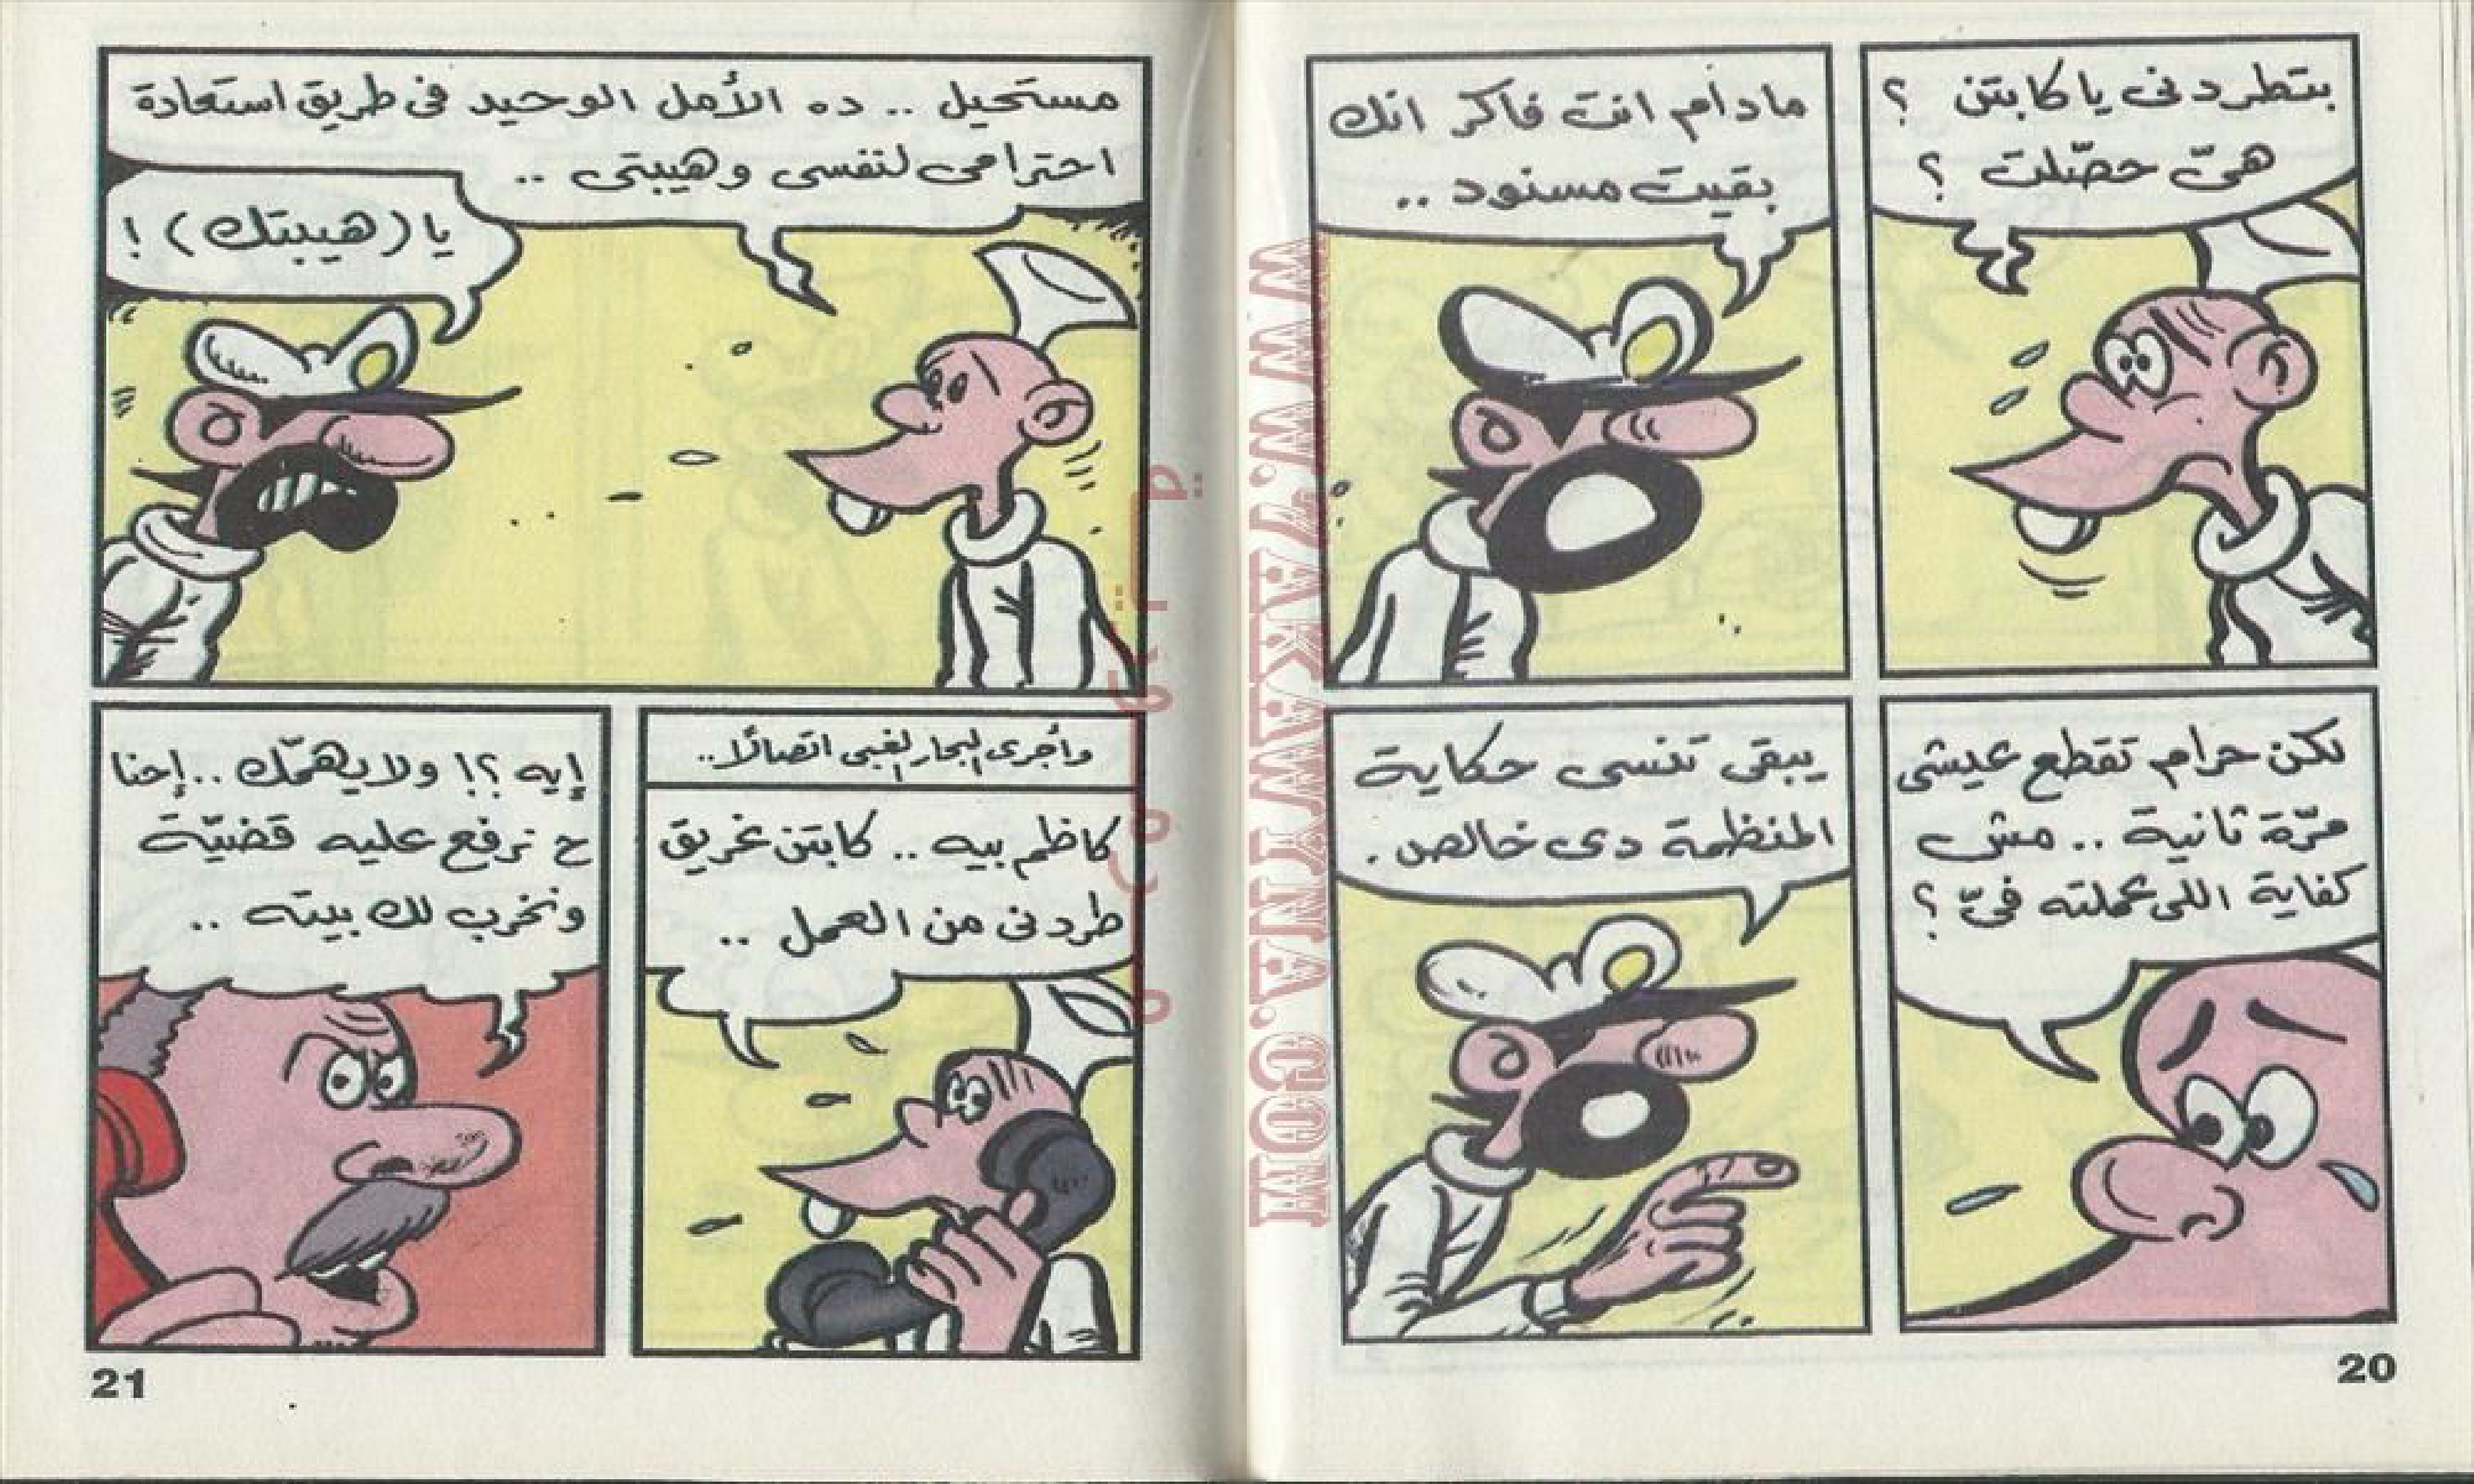 بتطردنى يا كابتن ؟
هىّ حصّلت ؟
مادام انت فاكر انك
بقيت مسنود ..
لكن حرام تقطع عيشى
مرّة ثانية .. مش
كفاية اللى عملته فىّ ؟
يبقى تنسى حكاية
المنظمة دى خالص .
20
مستحيل .. ده الأمل الوحيد فى طريق استعادة
احترامى لنفسى وهيبتى ..
يا (هيبتك) !
وأجرى البحار الغبى اتصالًا..
كاظم بيه .. كابتن غريق
طردنى من العمل ..
إيه ؟! ولا يهمّك .. إحنا
ح نرفع عليه قضيّة
ونخرب لك بيته ..
21